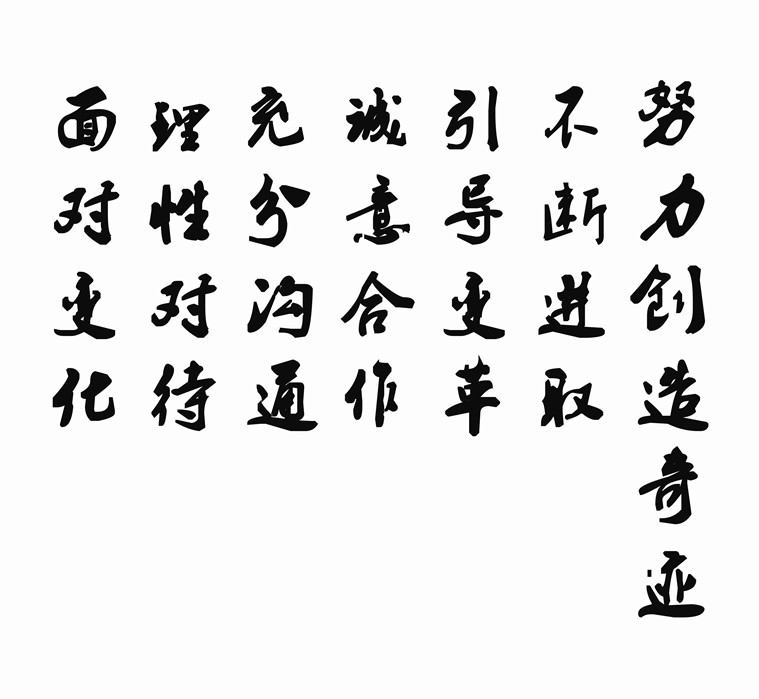 面对变化
理性对待
充分沟通
诚意合作
引导变革
不断进取
努力创造奇迹